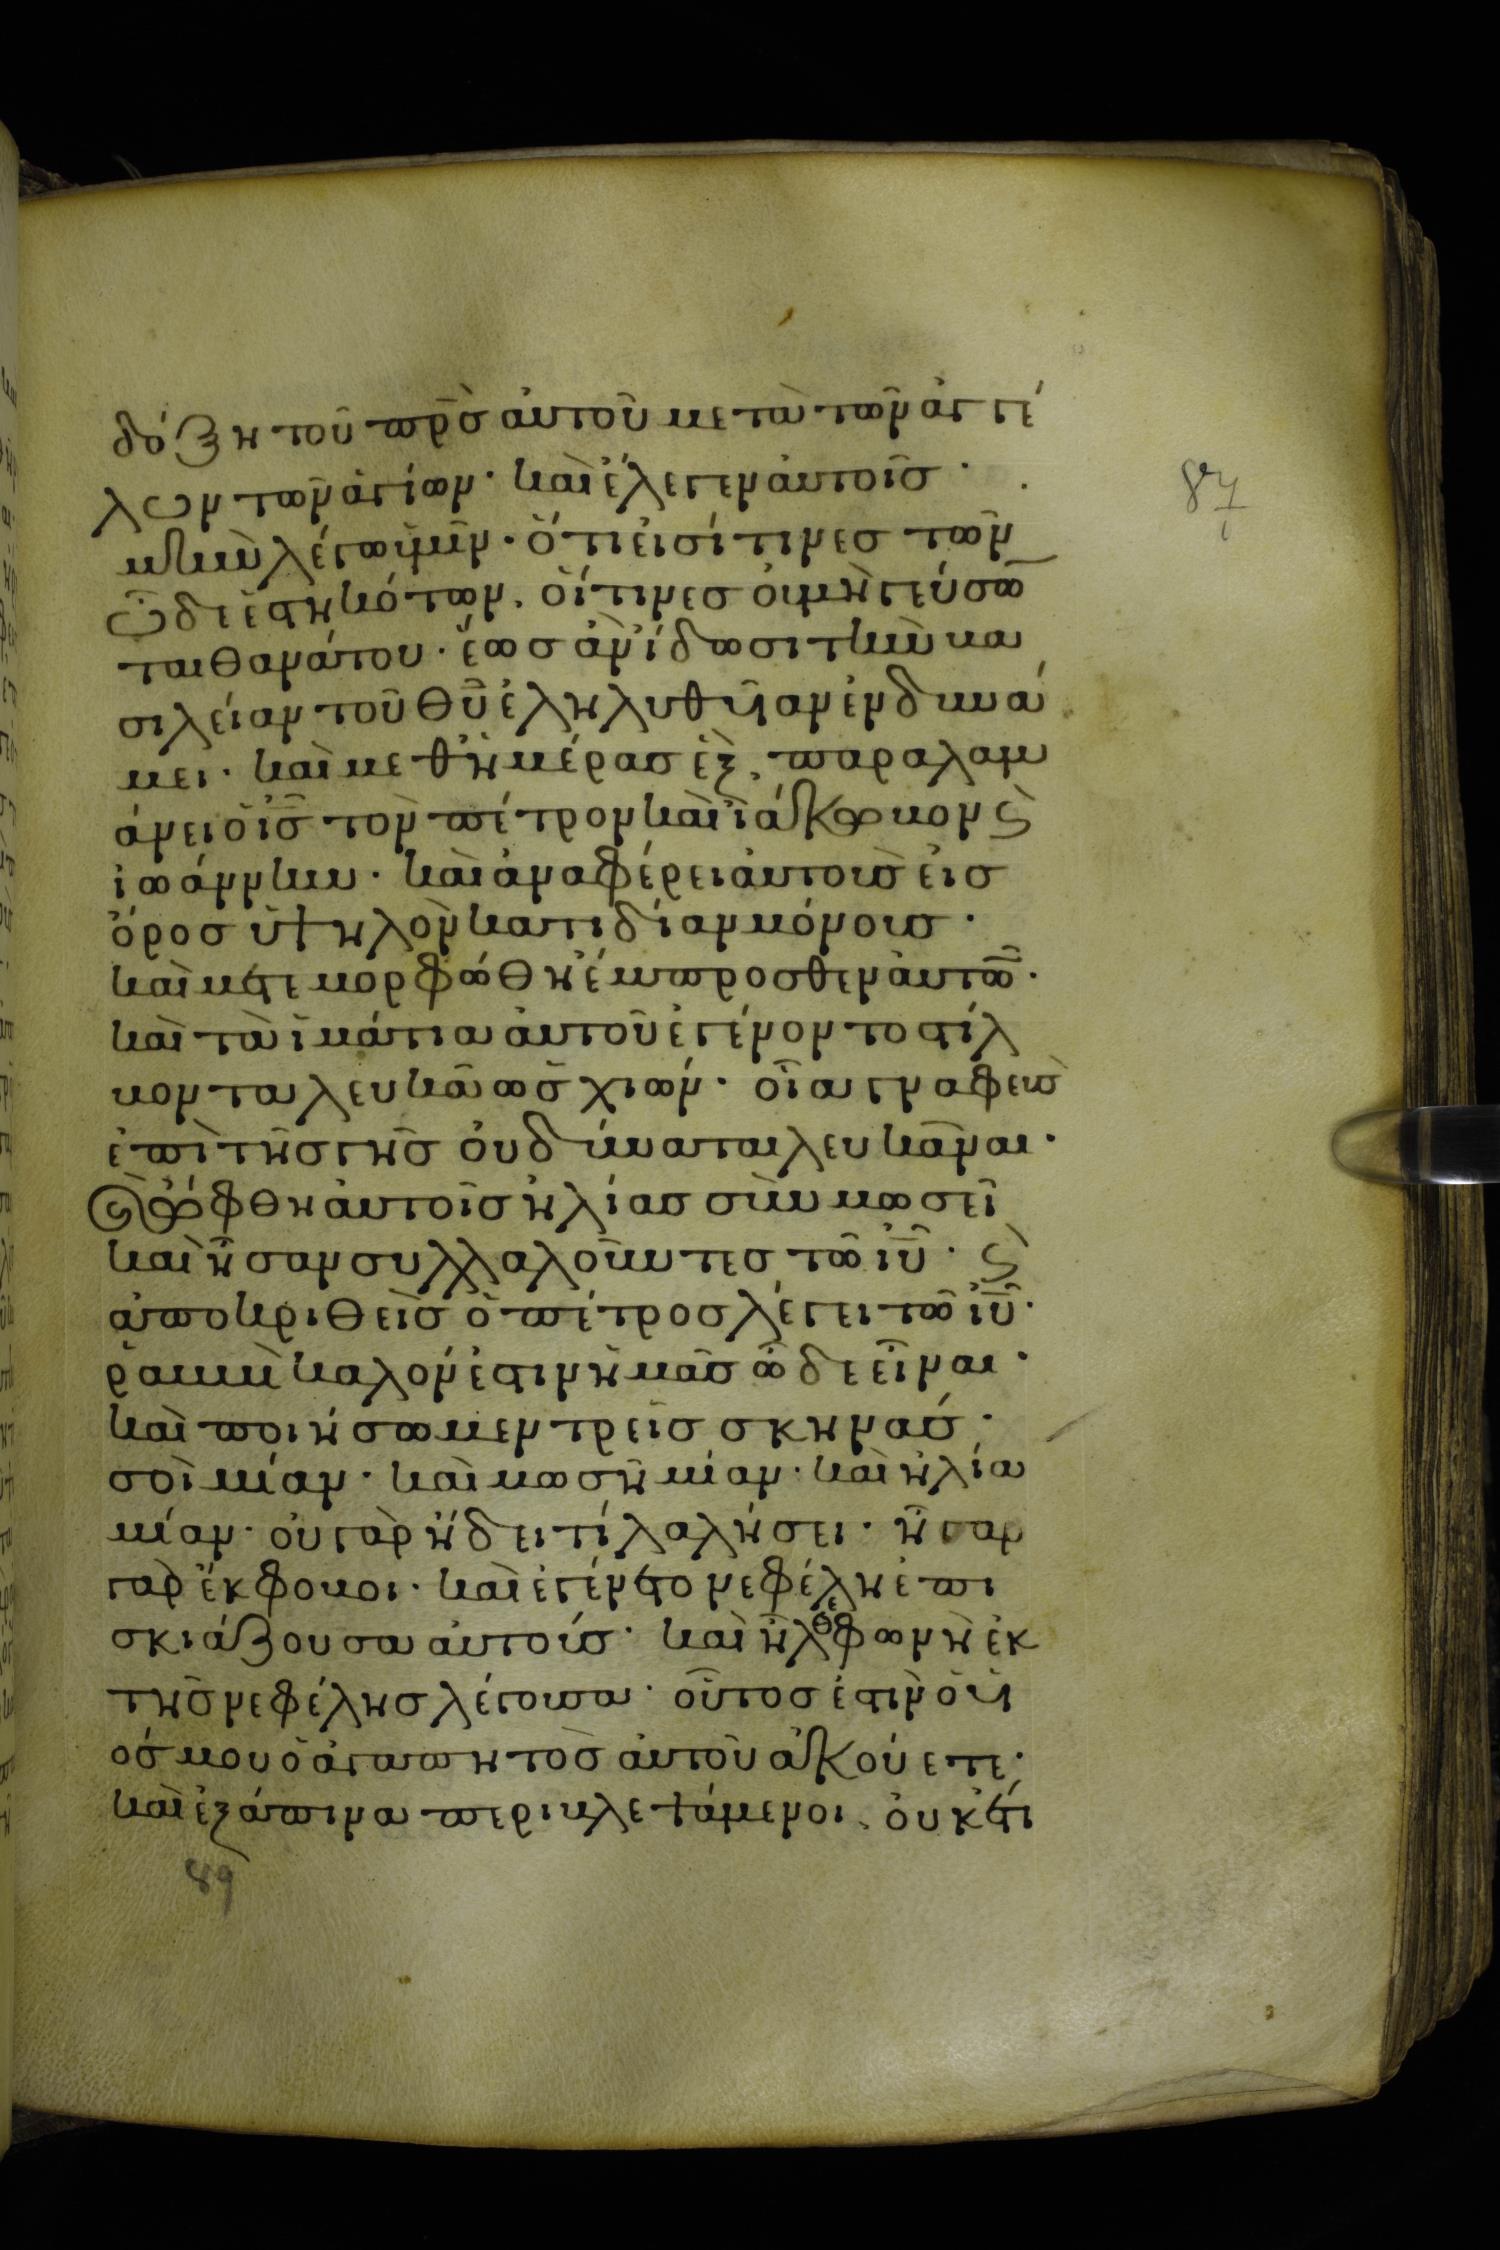 δόξη τοῦ πρ̅σ αὐτοῦ μετὰ τῶν ἀγγέ
λων τῶν ἁγίων· καὶ ἔλεγεν αὐτοῖσ·
ἀμὴν λέγω ὑμῖν· ὅτι εἰσί τινεσ τῶν
ὧδε ἑστηκότων, οἵτινεσ οὐ μὴ γεύσω̅
ται θανάτου· ἕωσ ἂν ἴδωσι τὴν βα
σιλείαν τοῦ θ̅υ̅ ἐληλυθυῖαν ἐν δυνά
μει· καὶ μεθ' ἡμέρασ ἓξ, παραλαμ
βάνει ὁ ι̅σ̅ τὸν πέτρον καὶ ἰάκωβον ϗ
ἰωάννην· καὶ ἀναφέρει αὐτοὺσ εἰσ
ὄροσ ὑψηλὸν κατιδίαν μόνουσ·
καὶ μετεμορφώθη ἔμπροσθεν αὐτῶ̅·
καὶ τὰ ἱμάτια αὐτοῦ ἐγένοντο στίλ
βοντα λευκὰ ὡσ χιών· οἷα γναφεὺσ
ἐπὶ τῆσ γῆσ οὐ δύναται λευκᾶναι·
ϗ ὤφθη αὐτοῖσ ἠλίασ σὺν μωσεῖ
καὶ ἦσαν συλλαλοῦντεσ τῶ ι̅υ̅· ϗ
ἀποκριθεὶσ ὁ πέτροσ λέγει τῶ ι̅υ̅·
ῥαββὶ καλόν ἐστιν ἡμᾶσ ὧδε εἶναι·
καὶ ποιήσωμεν τρεῖσ σκηνάσ·
σοὶ μίαν· καὶ μωσῆ μίαν· καὶ ἠλία
μίαν· οὐ γὰρ ἤδει τί λαλήσει· ἦσαν
γὰρ ἔκφοβοι· καὶ ἐγένετο νεφέλη ἐπι
σκιάζουσα αὐτοίσ· καὶ ἦλθε φωνὴ ἐκ
τῆσ νεφέλησ λέγουσα· οὗτοσ ἐστιν ὁ υἱ
όσ μου ὁ ἀγαπητὸσ αὐτοῦ ἀκούετε·
καὶ ἐξάπινα περιβλεψάμενοι, οὐκέτι
89